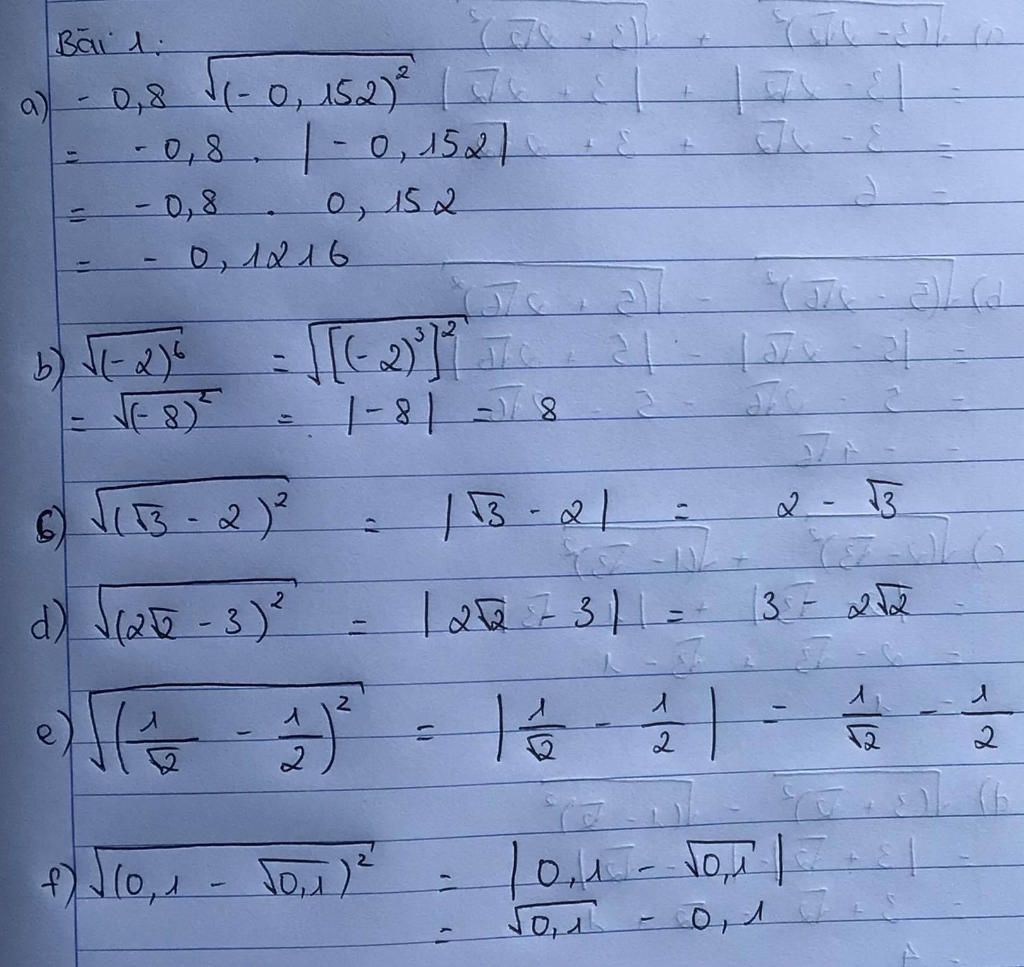 Bài 1:
a) - 0,8 √(-0,152)²
= -0,8 . |-0,152|
= -0,8 . 0,152
= - 0,1216
b) √(-2)⁶ = √[(-2)³]²
= √(-8)² = |-8| = 8
c) √(√3 - 2)² = |√3 - 2| = 2 - √3
d) √(2√2 - 3)² = |2√2 - 3| = 3 - 2√2
e) √(1/√2 - 1/2)² = |1/√2 - 1/2| = 1/√2 - 1/2
f) √(0,1 - √0,1)² = |0,1 - √0,1|
= √0,1 - 0,1